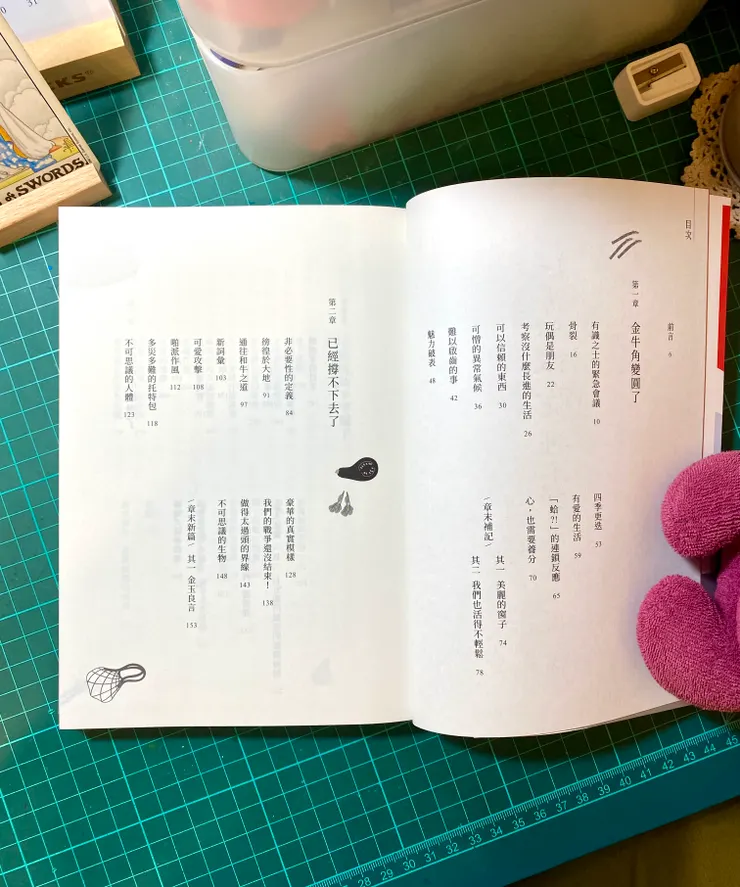 目次
前言 6
第一章 金牛角變圓了
有識之士的緊急會議 10
骨裂 16
玩偶是朋友 22
考察沒什麼長進的生活 26
可以信賴的東西 30
可憎的異常氣候 36
難以啟齒的事 42
魅力破表 48
四季更迭 53
有愛的生活 59
「蛤?!」的連鎖反應 65
心,也需要養分 70
〈章末補記〉 其一 美麗的窗子 74
其二 我們也活得不輕鬆 78
第二章 已經撐不下去了
非必要性的定義 84
徬徨於大地 91
通往和牛之道 97
新詞彙 103
可愛攻擊 108
啪派作風 112
多災多難的托特包 118
不可思議的人體 123
豪華的真實模樣 128
我們的戰爭還沒結束! 138
做得太過頭的界線 143
不可思議的生物 148
〈章末新篇〉其一 金玉良言 153
SWORDS
KS
31
28 29 30 31 32 33 34 35 36 37 38 39 40 41 42 43 44 45